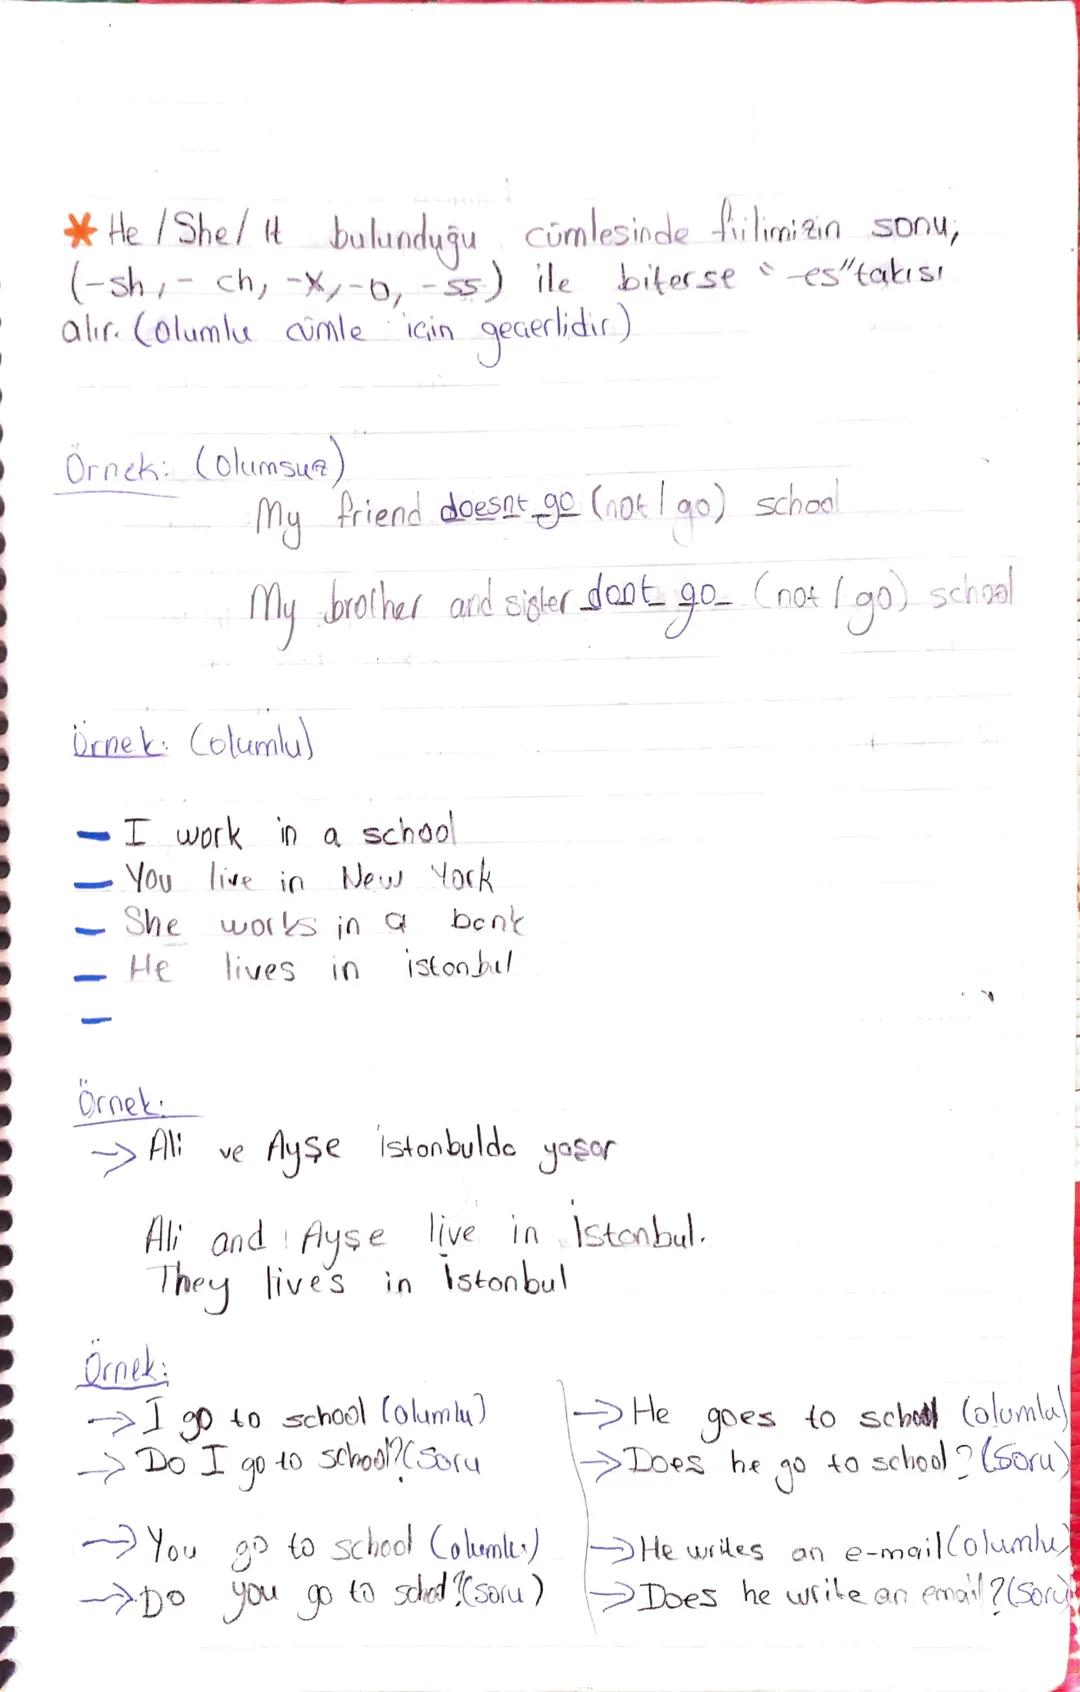 * He / She / It bulunduğu cümlesinde fiilimizin sonu,
(-sh, - ch, -x, -o, -ss) ile biterse "-es" takısı
alır. (Olumlu cümle için geçerlidir.)
Örnek: (Olumsuz)
My friend doesnt go (not / go) school
My brother and sister dont go (not / go) school
Örnek: (Olumlu)
- I work in a school
- You live in New York
- She works in a bank
- He lives in istanbul
-
Örnek:
→ Ali ve Ayşe istanbulda yaşar
Ali and Ayşe live in İstanbul.
They lives in İstanbul
Örnek:
→ I go to school (Olumlu)
→ Do I go to school? (Soru
→ You go to school (Olumlu)
→ Do you go to school? (Soru)
→ He goes to school (olumlu)
→ Does he go to school? (Soru)
→ He writes an e-mail (Olumlu)
→ Does he write an email? (Soru)